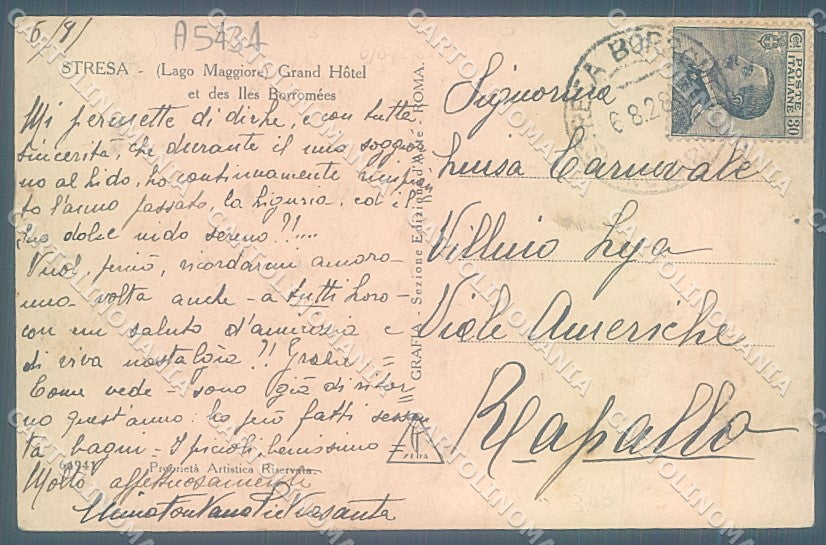 6/8/
A543A
STRESA - (Lago Maggiore) Grand Hôtel
et des Iles Borromées
Mi permette di dirle, e con tutta
sincerità, che durante il mio soggior
no al Lido, ho continuamente
to l'anno passato, la Liguria, ed il
suo dolce nido sereno?!....
Vuol, perciò, ricordarmi ancora-
una-volta anche-a tutti Loro-
con un saluto d'amicizia e
di viva nostalgia?! Grazie=
Come vede- sono già di ritor=
no quest'anno. ho però fatti sessan
ta bagni= I piccoli, benissimo=
Molto affettuosamente
64941 Proprietà Artistica Riservata.
Fontana Pietrasanta
GRAFIA - Sezione Edizioni d'Arte - ROMA.
STRESA BORROMEO
6.8.28
POSTE ITALIANE
Cent 30
Signorina
Luisa Carnevale
Villino Lya
Viale Americhe
Rapallo
CARTOLINOMANIA